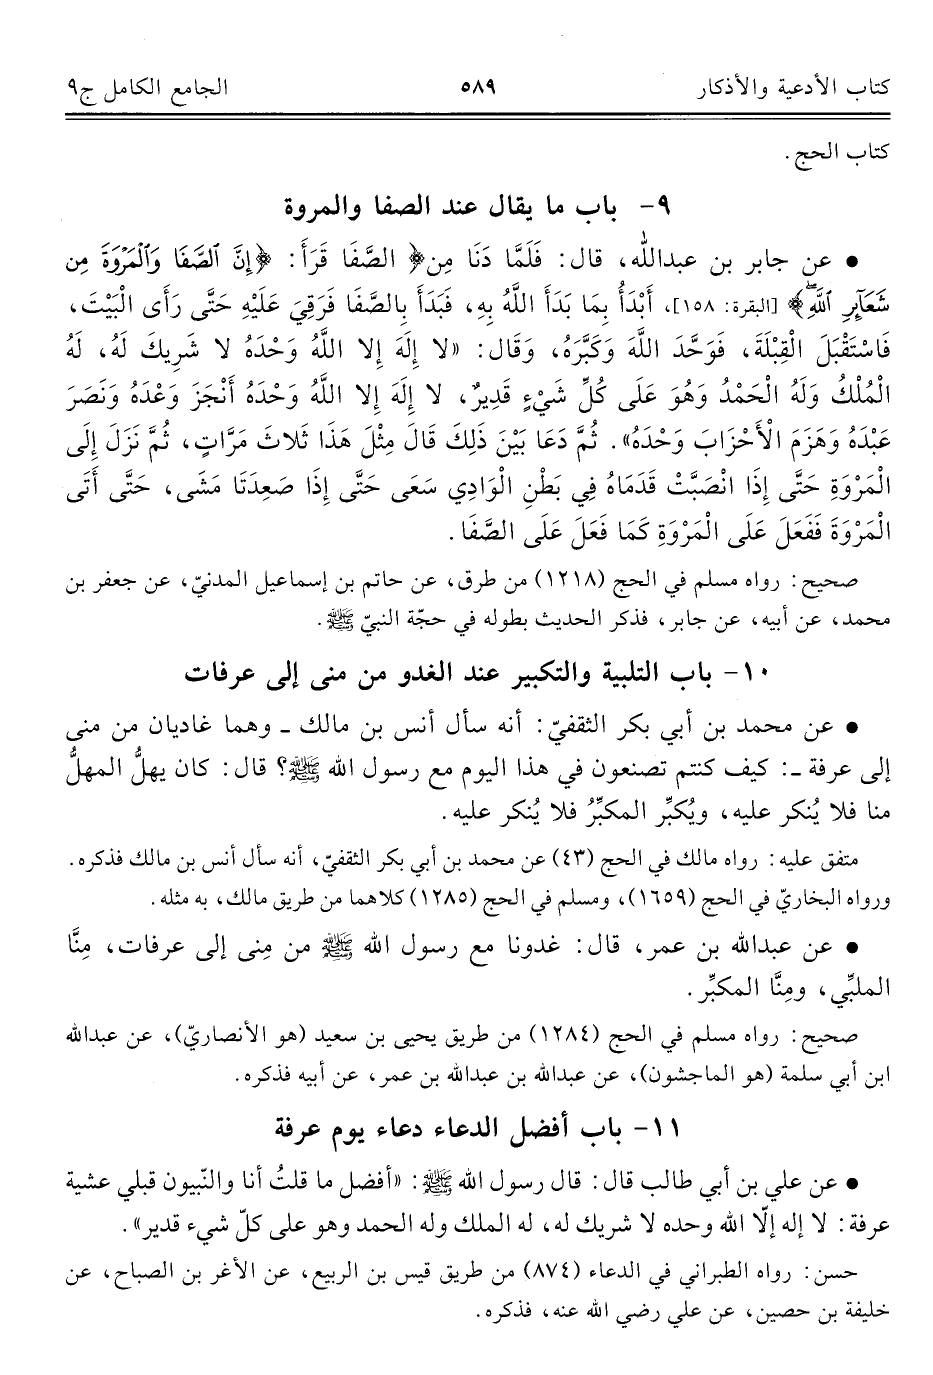 كتاب الأدعية والأذكار ٥٨٩ الجامع الكامل ج٩
كتاب الحج.
٩- باب ما يقال عند الصفا والمروة
• عن جابر بن عبدالله، قال: فَلَمَّا دَنَا مِن﴿ الصَّفَا قَرَأَ: ﴿إِنَّ ٱلصَّفَا وَٱلْمَرْوَةَ مِن
شَعَآئِرِ ٱللَّهِۖ﴾ [البقرة: ١٥٨]، أَبْدَأُ بِمَا بَدَأَ اللَّهُ بِهِ، فَبَدَأَ بِالصَّفَا فَرَقِيَ عَلَيْهِ حَتَّى رَأَى الْبَيْتَ،
فَاسْتَقْبَلَ الْقِبْلَةَ، فَوَحَّدَ اللَّهَ وَكَبَّرَهُ، وَقَال: «لا إِلَهَ إِلا اللَّهُ وَحْدَهُ لا شَرِيكَ لَهُ، لَهُ
الْمُلْكُ وَلَهُ الْحَمْدُ وَهُوَ عَلَى كُلِّ شَيْءٍ قَدِيرٌ، لا إِلَهَ إِلا اللَّهُ وَحْدَهُ أَنْجَزَ وَعْدَهُ وَنَصَرَ
عَبْدَهُ وَهَزَمَ الْأَحْزَابَ وَحْدَهُ». ثُمَّ دَعَا بَيْنَ ذَلِكَ قَالَ مِثْلَ هَذَا ثَلاثَ مَرَّاتٍ، ثُمَّ نَزَلَ إِلَى
الْمَرْوَةِ حَتَّى إِذَا انْصَبَّتْ قَدَمَاهُ فِي بَطْنِ الْوَادِي سَعَى حَتَّى إِذَا صَعِدَتَا مَشَى، حَتَّى أَتَى
الْمَرْوَةَ فَفَعَلَ عَلَى الْمَرْوَةِ كَمَا فَعَلَ عَلَى الصَّفَا.
صحيح: رواه مسلم في الحج (١٢١٨) من طرق، عن حاتم بن إسماعيل المدنيّ، عن جعفر بن
محمد، عن أبيه، عن جابر، فذكر الحديث بطوله في حجّة النبيّ ﷺ.
١٠- باب التلبية والتكبير عند الغدو من منى إلى عرفات
• عن محمد بن أبي بكر الثقفيّ: أنه سأل أنس بن مالك ـ وهما غاديان من منى
إلى عرفة ـ: كيف كنتم تصنعون في هذا اليوم مع رسول الله ﷺ؟ قال: كان يهلُّ المهلُّ
منا فلا يُنكر عليه، ويُكبِّر المكبِّرُ فلا يُنكر عليه.
متفق عليه: رواه مالك في الحج (٤٣) عن محمد بن أبي بكر الثقفيّ، أنه سأل أنس بن مالك فذكره.
ورواه البخاريّ في الحج (١٦٥٩)، ومسلم في الحج (١٢٨٥) كلاهما من طريق مالك، به مثله.
• عن عبدالله بن عمر، قال: غدونا مع رسول الله ﷺ من مِنى إلى عرفات، مِنَّا
الملبِّي، ومِنَّا المكبِّر.
صحيح: رواه مسلم في الحج (١٢٨٤) من طريق يحيى بن سعيد (هو الأنصاريّ)، عن عبدالله
ابن أبي سلمة (هو الماجشون)، عن عبدالله بن عبدالله بن عمر، عن أبيه فذكره.
١١- باب أفضل الدعاء دعاء يوم عرفة
• عن علي بن أبي طالب قال: قال رسول الله ﷺ: «أفضل ما قلتُ أنا والنّبيون قبلي عشية
عرفة: لا إله إلّا الله وحده لا شريك له، له الملك وله الحمد وهو على كلّ شيء قدير».
حسن: رواه الطبراني في الدعاء (٨٧٤) من طريق قيس بن الربيع، عن الأغر بن الصباح، عن
خليفة بن حصين، عن علي رضي الله عنه، فذكره.